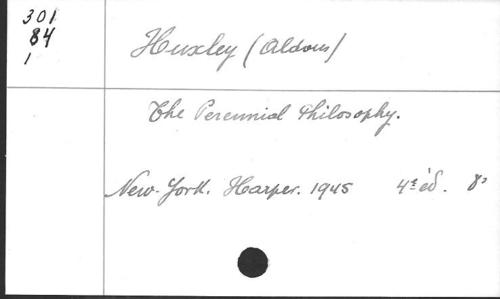 301
84
1
Huxley (Aldous)
The Perennial Philosophy.
New-York. Harper. 1945 4e éd. 8º